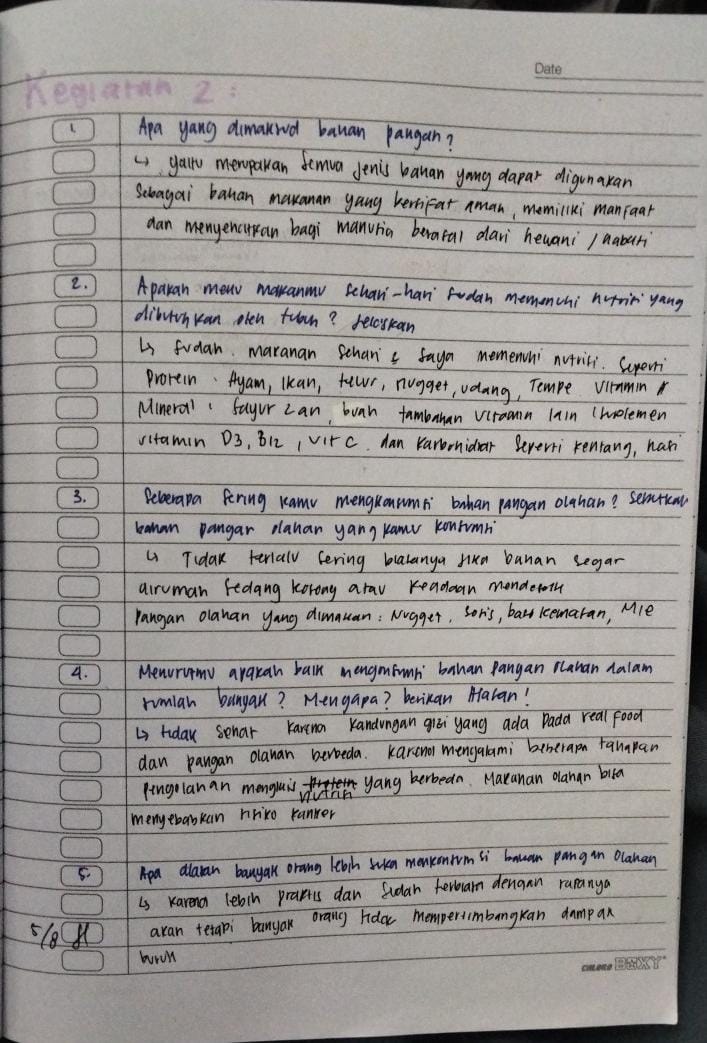 Date
Kegiatan 2 :
1. Apa yang dimaksud bahan pangan?
↳ yaitu merupakan semua jenis bahan yang dapat digunakan
sebagai bahan makanan yang bersifat aman, memiliki manfaat
dan menyehatkan bagi manusia berasal dari hewani / nabati
2. Apakah menu makanmu sehari-hari sudah memenuhi nutrisi yang
dibutuhkan oleh tubuh? Jelaskan
↳ sudah. makanan sehari saya memenuhi nutrisi. Seperti
Protein : Ayam, Ikan, telur, nugget, udang, Tempe Vitamin
Mineral : sayur 2an, buah tambahan vitamin lain
vitamin D3, B12, vit C. dan karbohidrat seperti kentang, nasi
3. Seberapa sering kamu mengkonsumsi bahan pangan olahan? Sebutkan
bahan pangan olahan yang kamu konsumsi
↳ Tidak terlalu sering biasanya jika bahan segar
dirumah sedang kosong atau keadaan mendesak
Pangan olahan yang dimakan : Nugget, Sosis, baso kemasan, Mie
4. Menurutmu apakah baik mengonsumsi bahan pangan olahan dalam
jumlah banyak? Mengapa? berikan Alasan!
↳ tidak sehat karena kandungan gizi yang ada pada real food
dan pangan olahan berbeda. karena mengalami beberapa tahapan
Pengolahan protein nutrisi yang berbeda. Makanan olahan bisa
menyebabkan risiko kanker
5. Apa alasan banyak orang lebih suka menkonsumsi bahan pangan Olahan
↳ karena lebih praktis dan sudah terbiasa dengan rasanya
akan tetapi banyak orang tidak mempertimbangkan dampak
buruk
5/8
BOXY